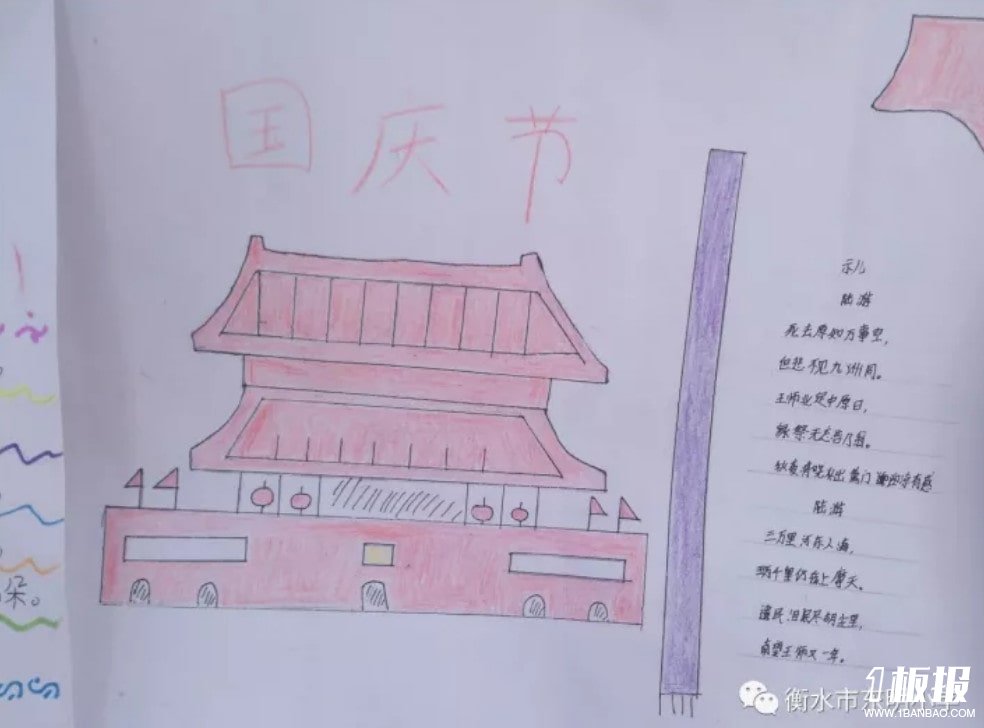 国庆节
示儿
陆游
死去原知万事空，
但悲不见九洲同。
王师北定中原日，
家祭无忘告乃翁。
秋夜将晓出篱门迎凉有感
陆游
三万里河东入海，
五千仞岳上摩天。
遗民泪尽胡尘里，
南望王师又一年。
朵。
衡水市东明小学
1板报
WWW.1BANBAO.COM